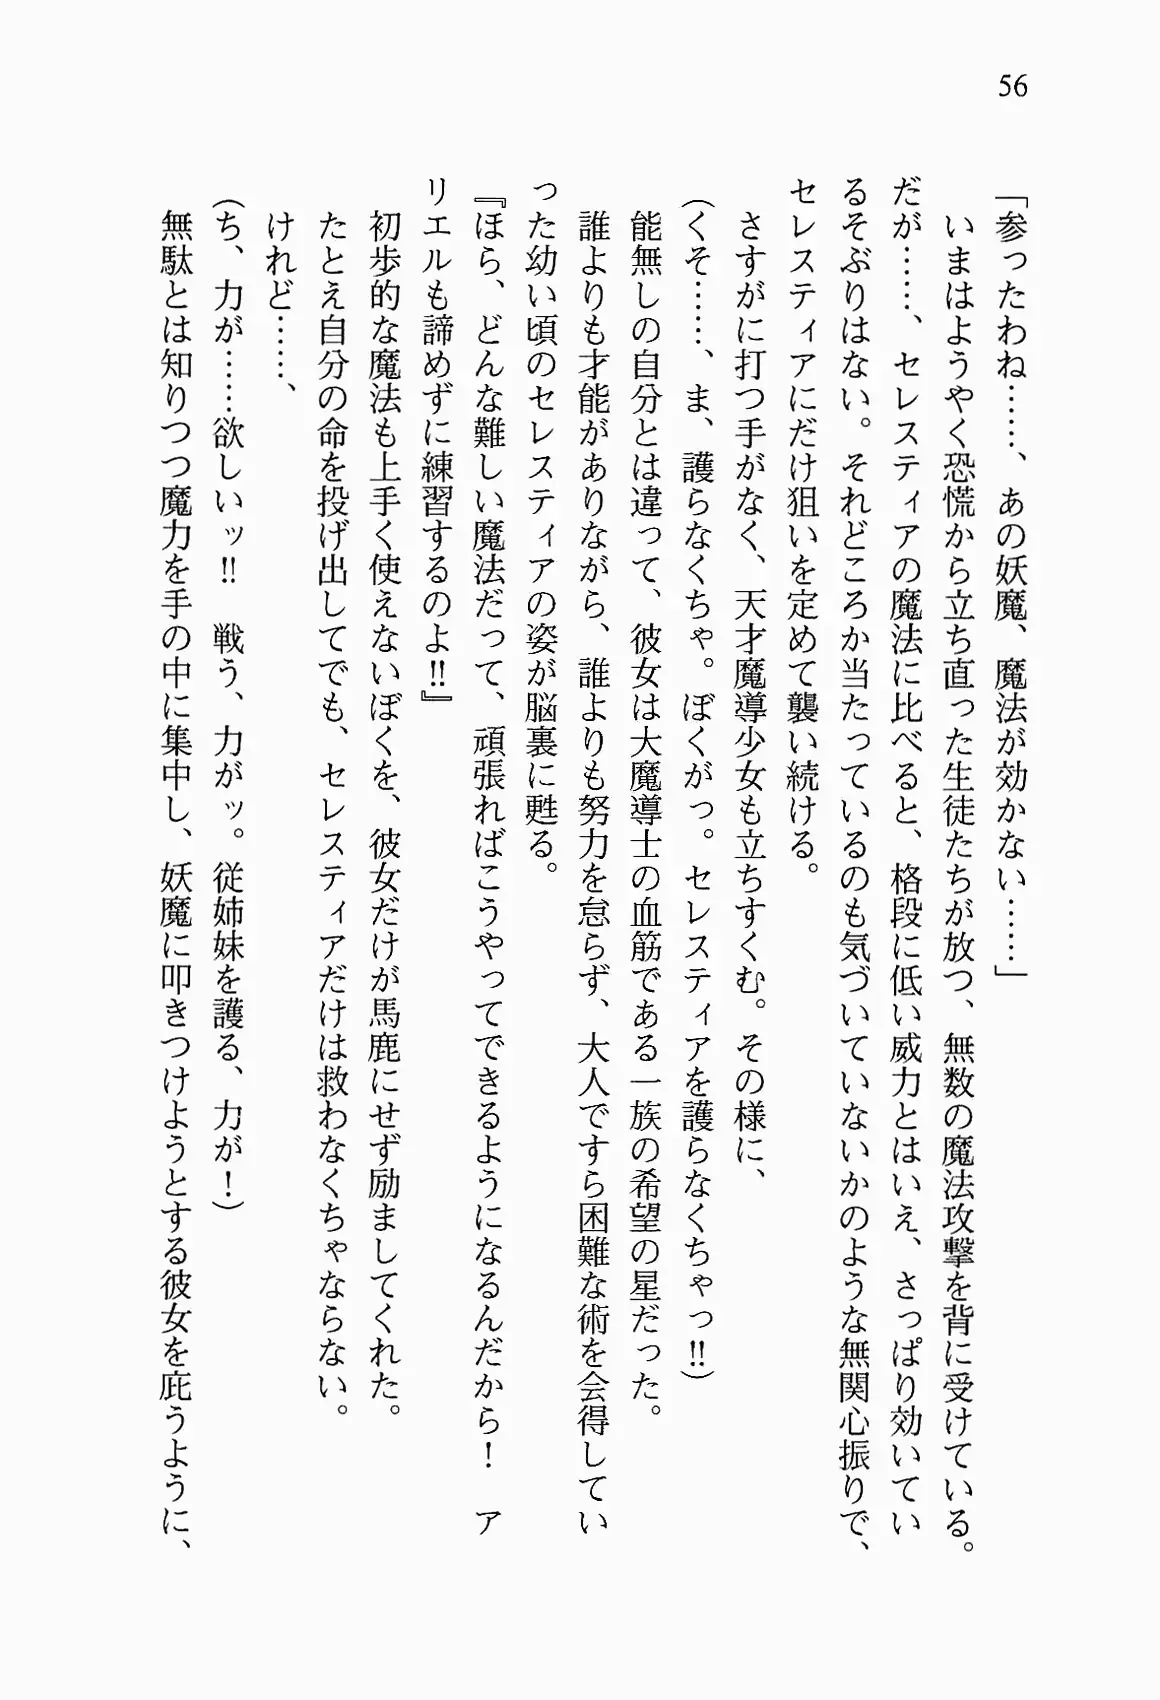 56
「参ったわね……、あの妖魔、魔法が効かない……」
　いまはようやく恐慌から立ち直った生徒たちが放つ、無数の魔法攻撃を背に受けている。
だが……、セレスティアの魔法に比べると、格段に低い威力とはいえ、さっぱり効いてい
るそぶりはない。それどころか当たっているのも気づいていないかのような無関心振りで、
セレスティアにだけ狙いを定めて襲い続ける。
　さすがに打つ手がなく、天才魔導少女も立ちすくむ。その様に、
（くそ……、ま、護らなくちゃ。ぼくがっ。セレスティアを護らなくちゃっ!!）
　能無しの自分とは違って、彼女は大魔導士の血筋である一族の希望の星だった。
　誰よりも才能がありながら、誰よりも努力を怠らず、大人ですら困難な術を会得してい
った幼い頃のセレスティアの姿が脳裏に甦る。
『ほら、どんな難しい魔法だって、頑張ればこうやってできるようになるんだから！　ア
リエルも諦めずに練習するのよ!!』
　初歩的な魔法も上手く使えないぼくを、彼女だけが馬鹿にせず励ましてくれた。
　たとえ自分の命を投げ出してでも、セレスティアだけは救わなくちゃならない。
　けれど……、
（ち、力が……欲しいッ!!　戦う、力がッ。従姉妹を護る、力が！）
　無駄とは知りつつ魔力を手の中に集中し、妖魔に叩きつけようとする彼女を庇うように、